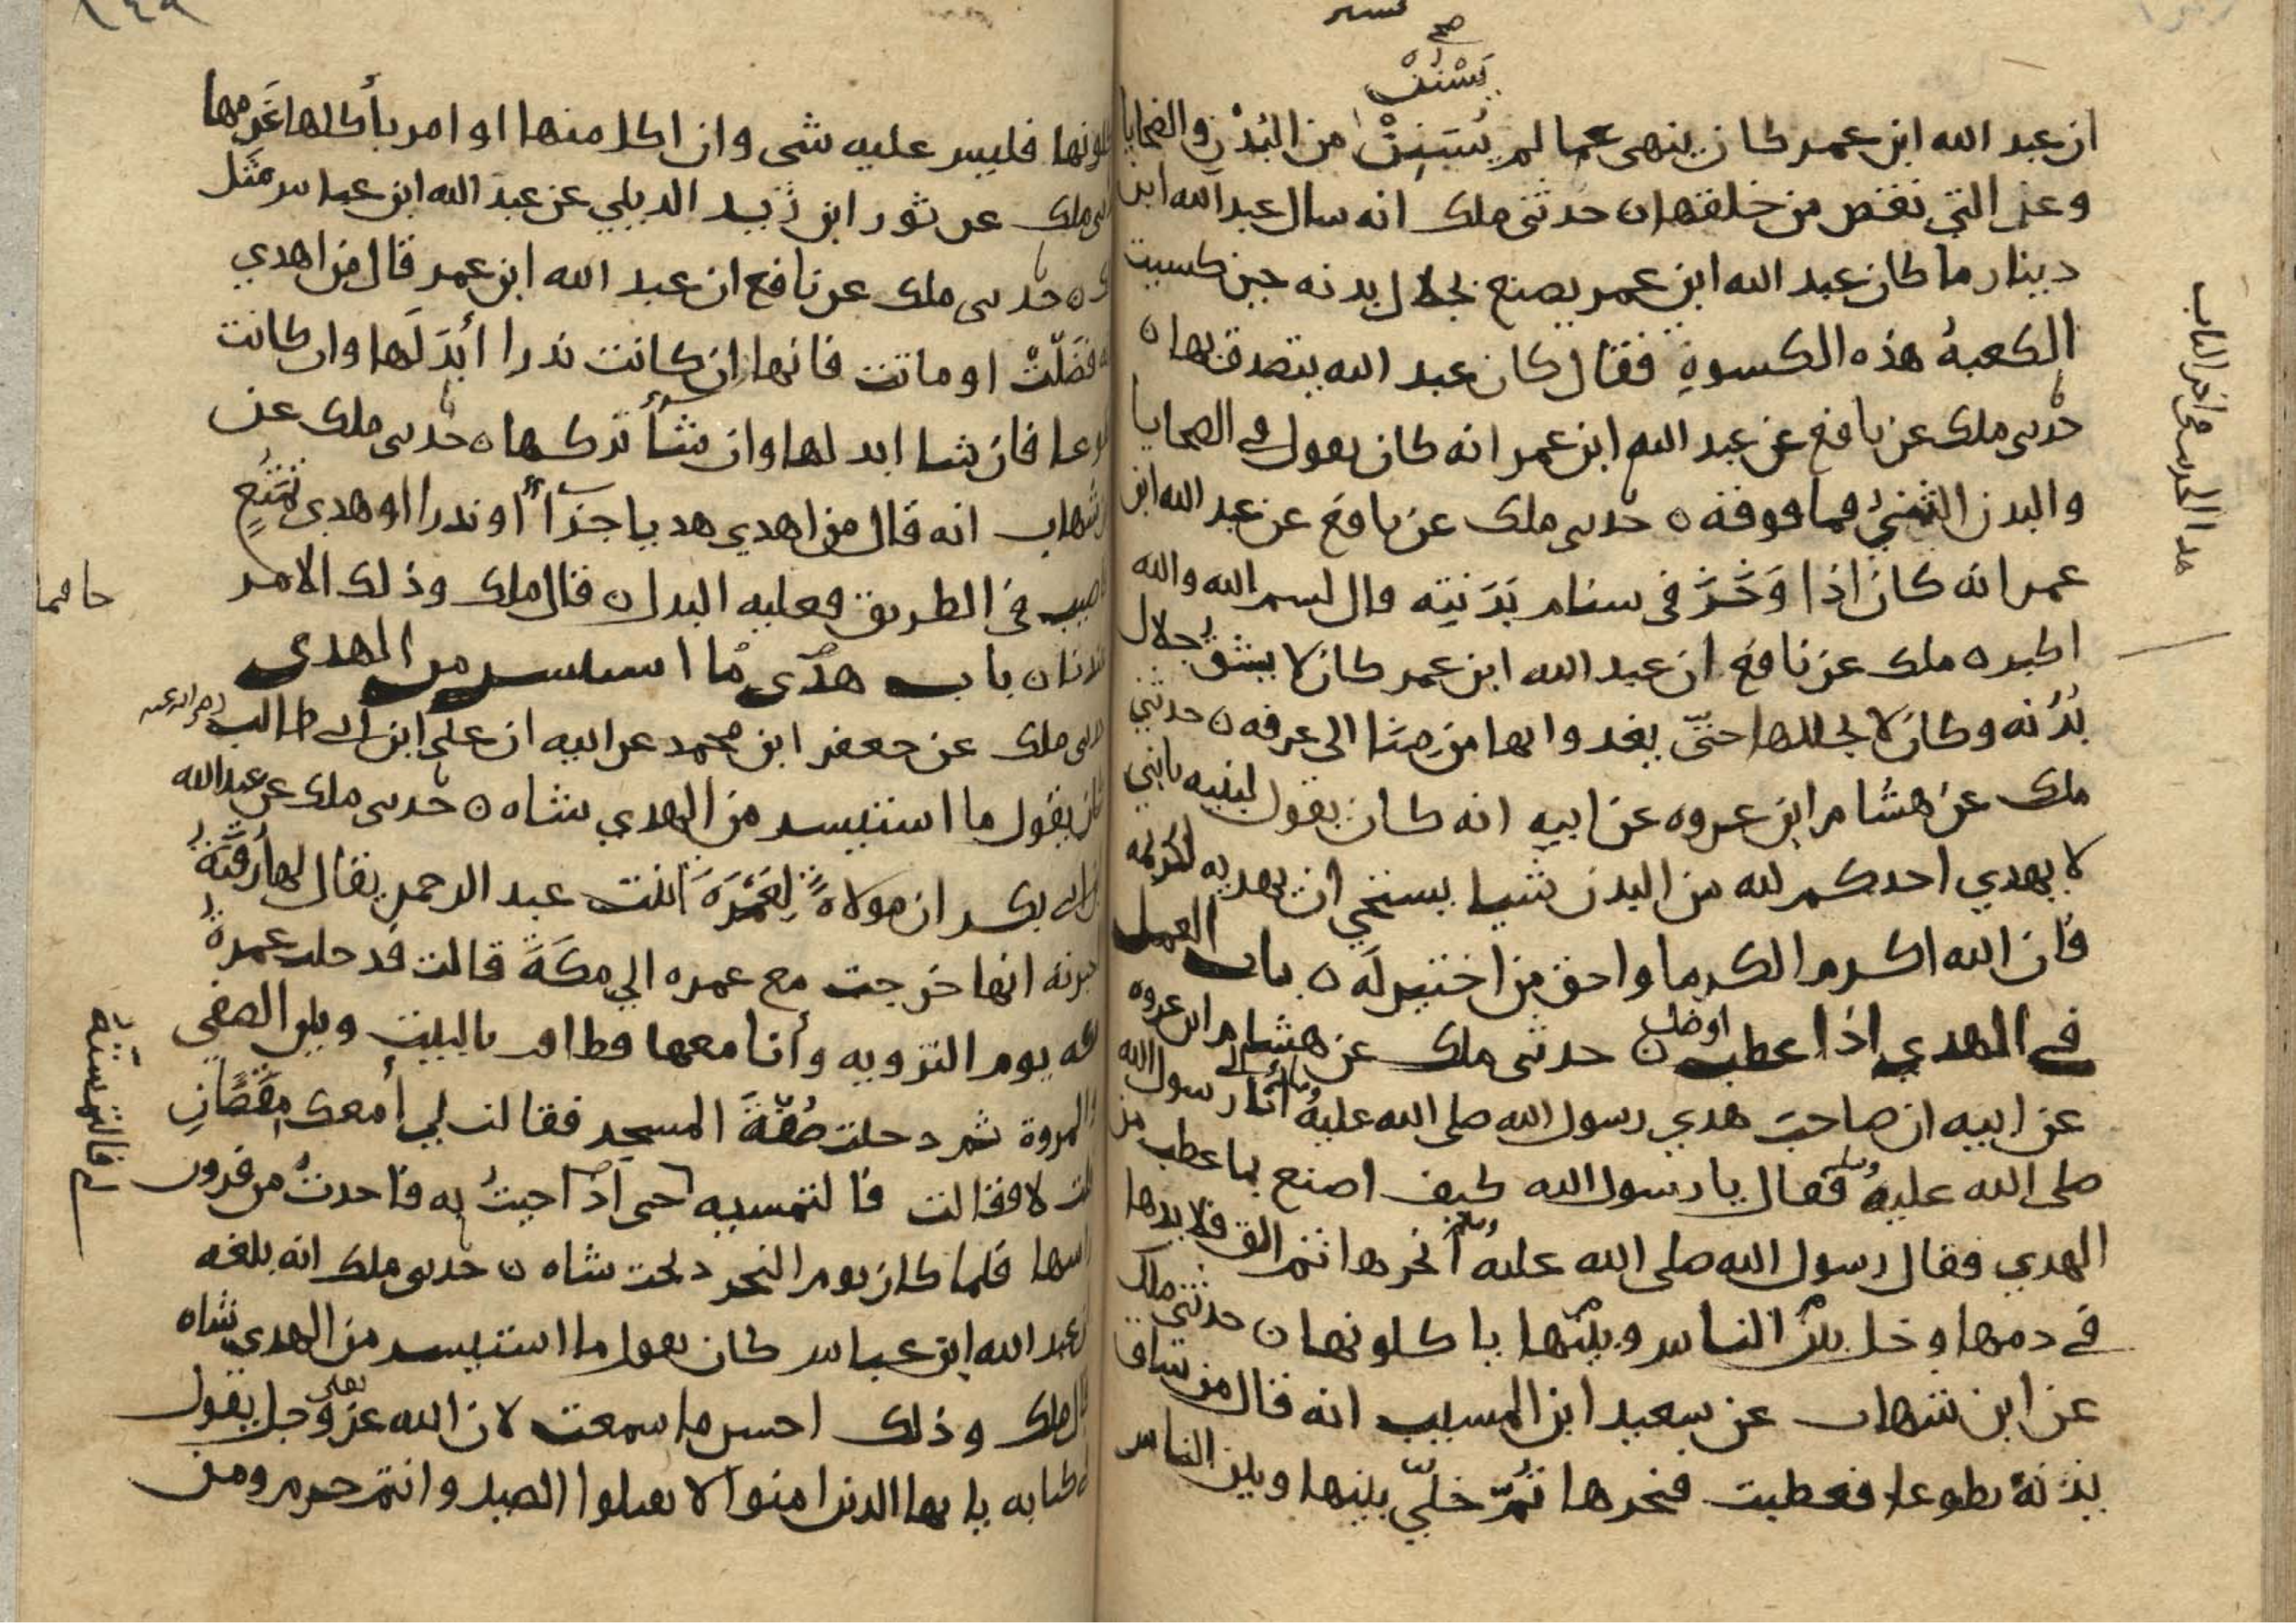 يَسْنُنْ صح
ان عبد الله ابن عمر كان ينهى عما لم يُسَنِنْ من البُدْنِ والضحايا
وعن التي نقض من خلقها ٥ حدثني ملك انه سال عبد الله ابن
دينار ما كان عبد الله ابن عمر يصنع بجلال بدنه حين كسيت
الكعبةُ هذه الكسوةِ فقال كان عبد الله يتصدق بها ٥
حدىى ملك عن نافع عن عبد الله ابن عمر انه كان يقول في الضحايا
والبدن الثنيُ فما فوقه ٥ حدىى ملك عن نافع عن عبد الله ابن
عمر انه كان اذا وَخَزَ في سنام بَدَنَتِه قال بسم الله والله
اكبر ٥ ملك عن نافع ان عبد الله ابن عمر كان لا يشق جلال
بُدُنه وكان لا يجللها حتىّ يغدوا بها من منا الى عرفه ٥ حدثني
ملك عن هشام ابن عروه عن ابيه انه كان يقول لبنيه يابني
لا يهدي احدكم لله من البدن شيا يستحي ان يهديه لكريمه
فان الله اكرم الكرما واحق من اختير لَه ٥ باب العمل
في الهدي اذا عطب اوضل ٥ حدثنى ملك عن هشام ابن عروه
عن ابيه ان صاحبَ هدي رسول الله صلى الله عليه وسلم أتا رسول الله
صلى الله عليه وسلم فقال يا رسول الله كيف اصنع بما عطب من
الهدي فقال رسول الله صلى الله عليه وسلم أنحرها ثم الق قلايدها
في دمها وخل بين الناس وبينها ياكلونها ٥ حدثنى ملك
عن ابن شهاب عن سعيد ابن المسيب انه قال من ساق
بدنةً تطوعا فعطبت فنحرها ثُمّ خليّ بينها وبين الناس
كلونها فليس عليه شى وان اكل منها او امر بأكلها غَرِمها
ىى ملك عن ثور ابن زَيد الديلي عن عبد الله ابن عباس مثَل
٥ حدىى ملك عن نافع ان عبد الله ابن عمر قال من اهدي
فضَلّتْ او ماتت فانها ان كانت نذرا أبدَلَها وان كانت
وعا فان شا ابدلها وان شأ تركها ٥ حدىى ملك عن
شهاب انه قال من اهدي هديا جزَاً أو نذرا او هدي تمتُعٍ
صيب في الطريق فعليه البدل ٥ قال ملك وذلك الامر
ندنا ٥ باب هدى ما استيسر من الهدى
ىى ملك عن جعفر ابن محمد عن ابيه ان علي ابن ابى طالب
كان يقول ما استيسر من الهدي شاه ٥ حدىى ملك عن عبد الله
ن ابى بكر ان مولاةً لِعَمْرَةَ ابنت عبد الرحمن يقال لها رقيَّةُ
خبرته انها خرجت مع عمره الي مكَةَ قالت فدخلت عمرةُ
كه يوم التروية وأنا معها فطافت بالبيت وبين الصفي
والمروة ثم دخلت صُفّةَ المسجد فقالت لي أمعك مِقَصَّانِ
لت لا فقالت فالتمسيه حى اذا جيتُ به فاخذتْ من قرون
اسها فلما كان يوم النحر ذبحت شاه ٥ حدىى ملك انه بلغه
ن عبد الله ابن عباس كان يقول ما استيسر من الهدي شاه
قال ملك وذلك احسن ما سمعت لان الله عزوجل يقول
كتابه يا يها الذين امنوا لا تقتلوا الصيد وانتم حرم ومن